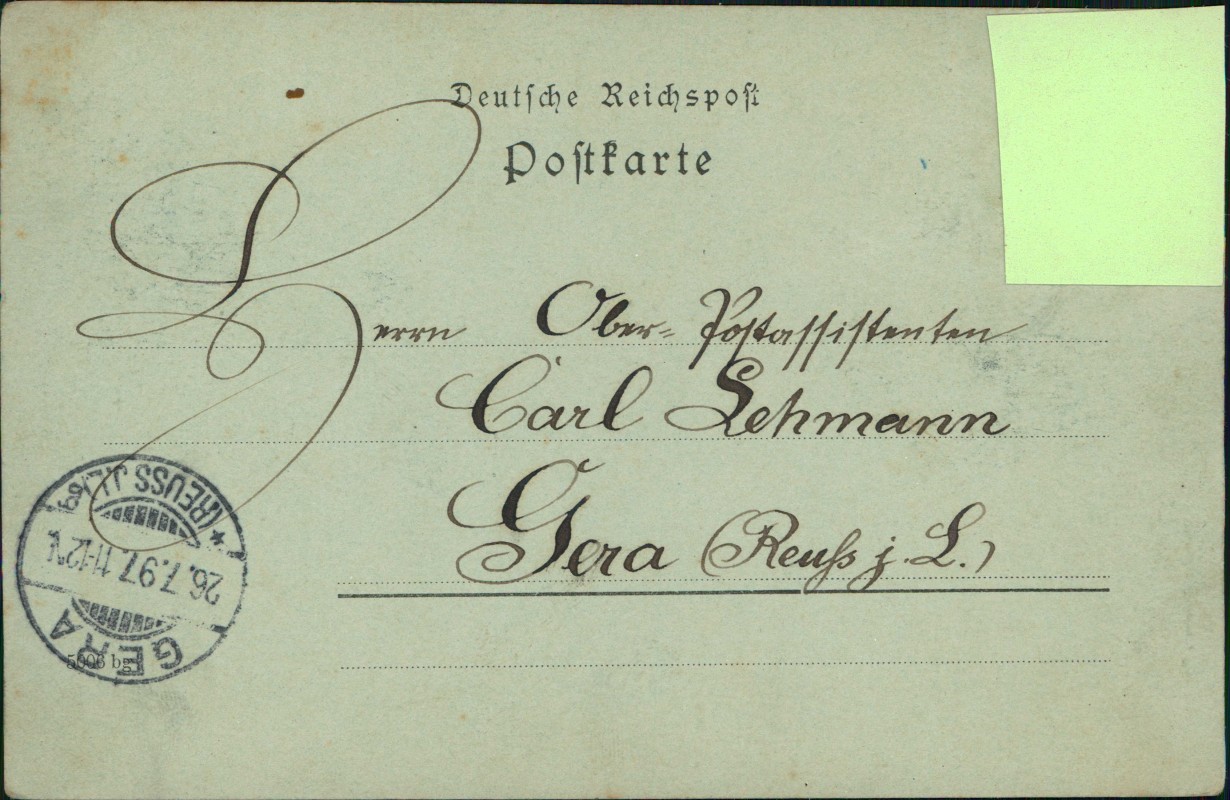 Deutſche Reichspoſt
Poſtkarte
Herrn Ober-Postassistenten
Carl Lehmann
Gera (Reuss j. L.)
GERA
26.7.97.11-12V.
(REUSS J.L.)
5006 bg